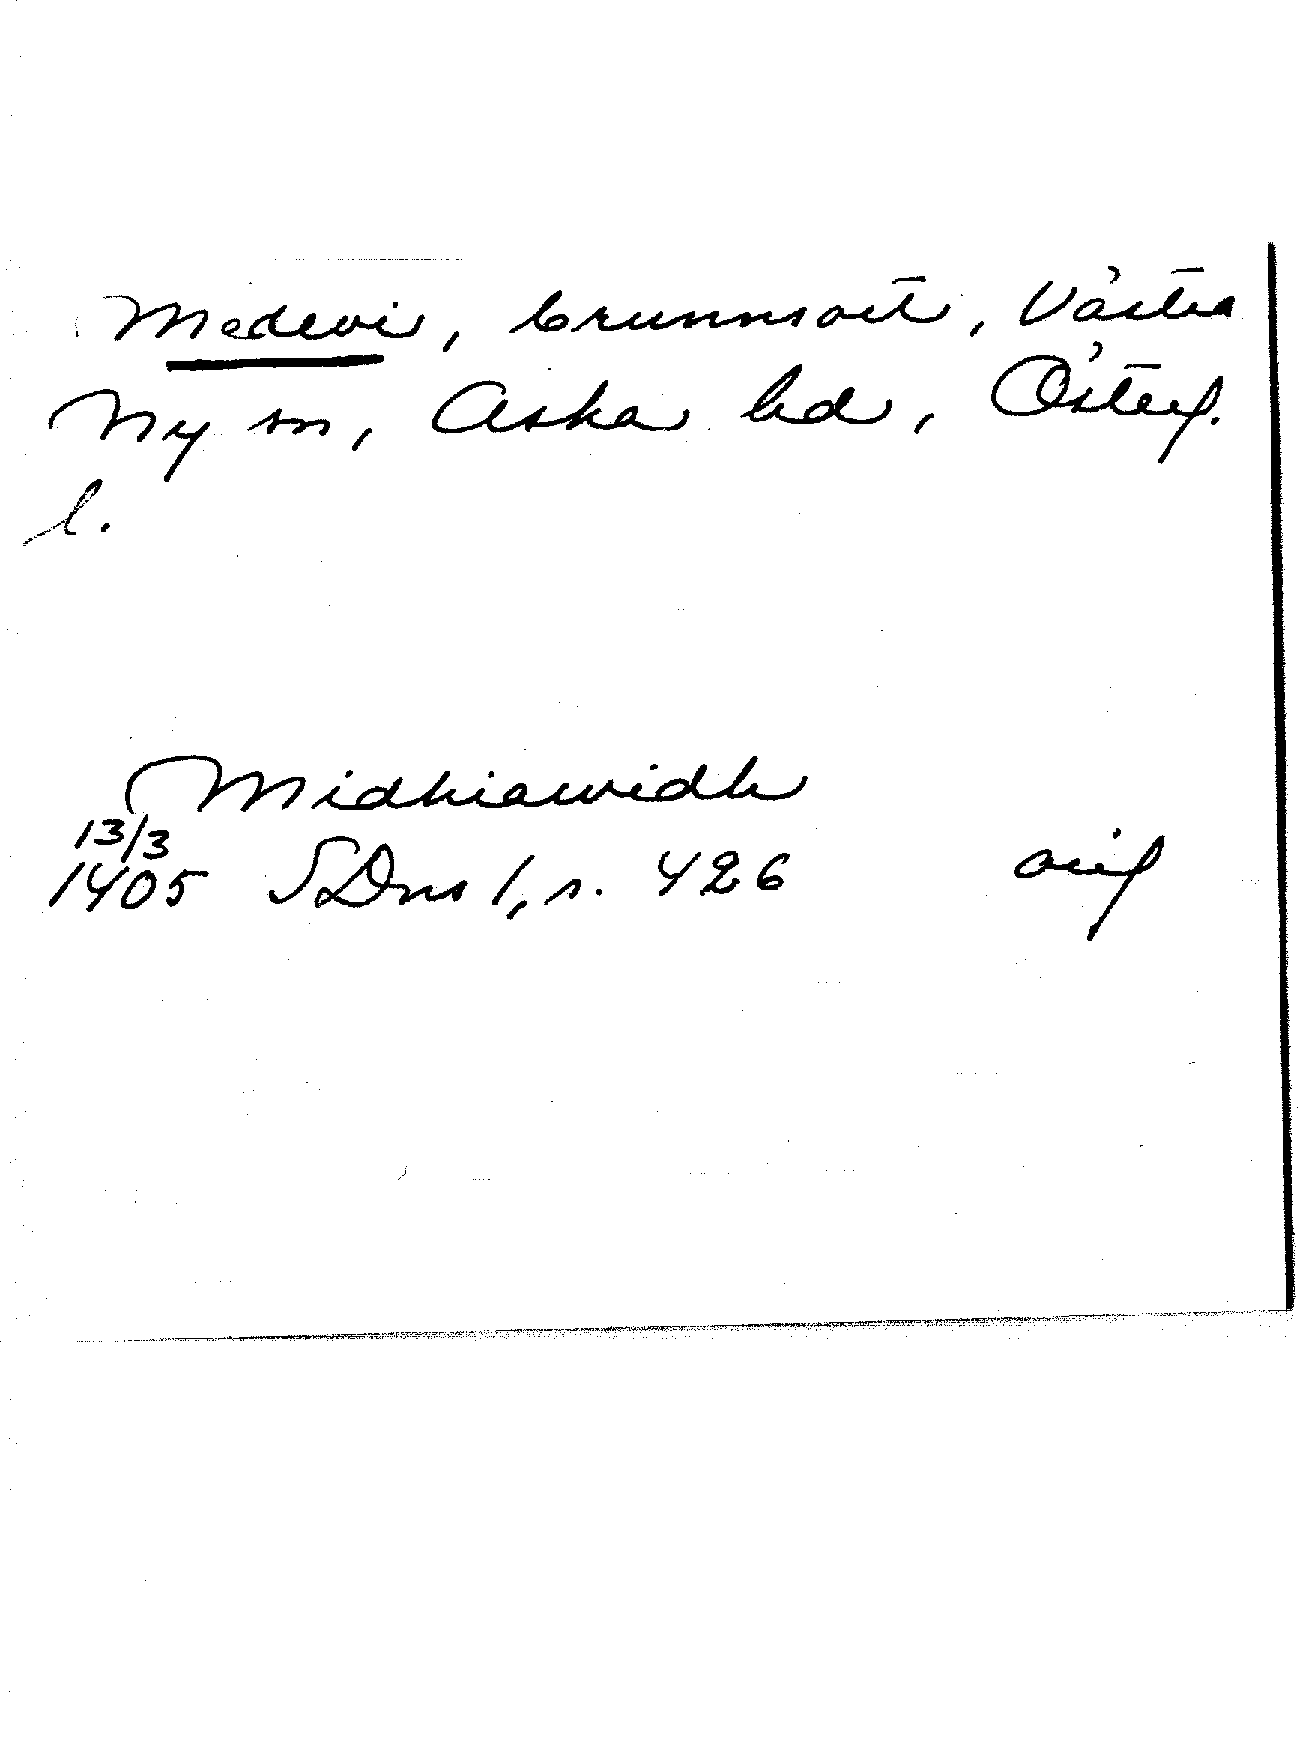 Medevi, brunnsort, Västra
Ny sn, Aska hd, Österg.
l.
Midhiawidh
13/3
1405 SDns 1, s. 426 orig